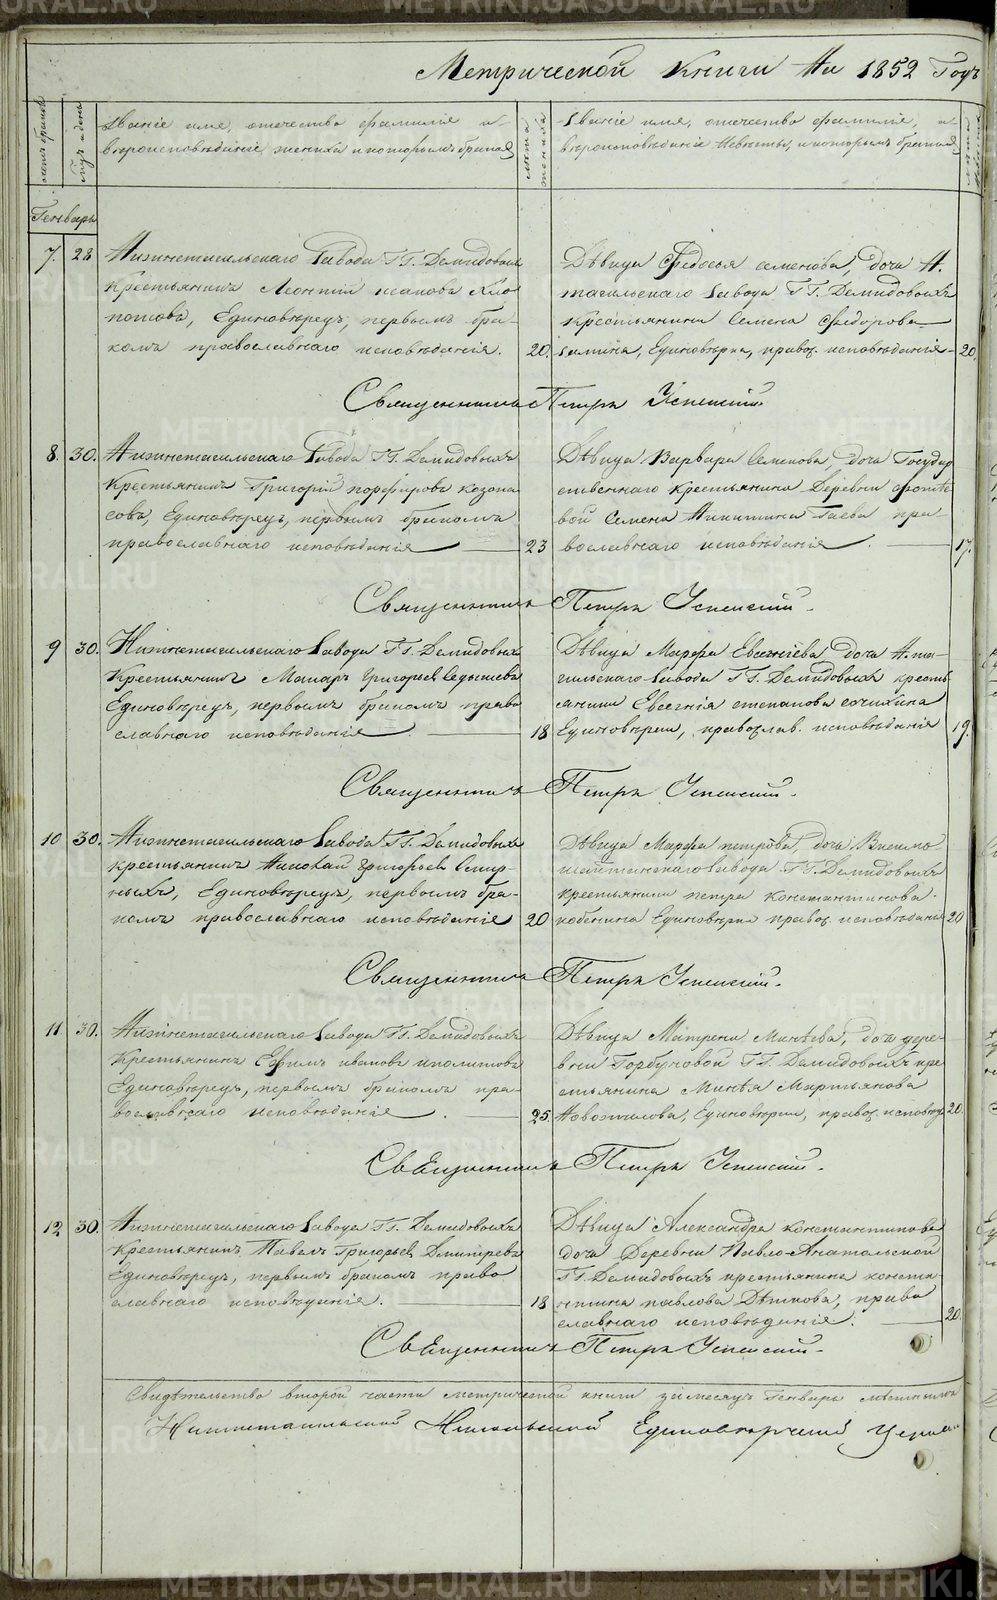 METRIKI.GASO-URAL.RU
Метрической Книги На 1852 Годъ
Званіе имя, отечество фамиліе и вѣроисповѣданіе жениха и которымъ бракомъ
лѣта жениха
Званіе имя, отечество фамиліе, и вѣроисповѣданіе Невѣсты, и которымъ бракомъ
Генварь
7. 28
Нижнетагильскаго Завода ГГ. Демидовыхъ
Крестьянинъ Леонтій исаковъ Хло-
потовъ, Единовѣрецъ, первымъ бра-
комъ православнаго исповѣданія. 20.
Дѣвица Федосья семенова, дочь Н.
тагильскаго Завода ГГ. Демидовыхъ
Крестьянина Семена Федорова
Единовѣрка, правос. исповѣданія 20.
Священникъ Петръ Успенскій.
8. 30.
Нижнетагильскаго Завода ГГ. Демидовыхъ
Крестьянинъ Григорій порфировъ
Единовѣрецъ, первымъ бракомъ
православнаго исповѣданія 23
Дѣвица Варвара Семенова дочь Государ
ственнаго крестьянина Деревни
Семена Никитина Гаева пра-
вославнаго исповѣданія. 17.
Священникъ Петръ Успенскій.
9 30.
Нижнетагильскаго Завода ГГ. Демидовыхъ
Крестьянинъ Макаръ Григорьевъ Седышевъ
Единовѣрецъ, первымъ бракомъ право
славнаго исповѣданія 18
Дѣвица Марфа Евгеніева дочь Н. та-
гильскаго Завода ГГ. Демидовыхъ кресть
янина Евгенія степанова
Единовѣрка, православ. исповѣданія 19.
Священникъ Петръ Успенскій.
10 30.
Нижнетагильскаго Завода ГГ. Демидовыхъ
крестьянинъ Николай Григорьевъ Смир-
ныхъ, Единовѣрецъ, первымъ бра-
комъ православнаго исповѣданія 20
Дѣвица Марфа петрова дочь Висимо
шайтанскаго Завода ГГ. Демидовыхъ
крестьянина петра константинова
кобенина Единовѣрка правос. исповѣданія 20
Священникъ Петръ Успенскій.
11. 30.
Нижнетагильскаго Завода ГГ. Демидовыхъ
Крестьянинъ Ефимъ ивановъ иполитовъ
Единовѣрецъ, первымъ бракомъ пра-
вославнаго исповѣданія. 25.
Дѣвица Матрена Минѣева, дочь дере-
вни Горбуновой ГГ. Демидовыхъ кре
стьянина Минѣя Мартьянова
Новожилова, Единовѣрка, правос. исповѣд 20.
Священникъ Петръ Успенскій.
12 30.
Нижнетагильскаго Завода ГГ. Демидовыхъ
Крестьянинъ Павелъ Григорьевъ Дмитревъ
Единовѣрецъ, первымъ бракомъ право
славнаго исповѣданія. 18
Дѣвица Александра константинова
дочь Деревни Павло-Анатольской
ГГ. Демидовыхъ крестьянина конста-
нтина павлова Дѣткова, право
славнаго исповѣданія. 20.
Священникъ Петръ Успенскій.
Свидѣтельство второй части метрической книги за месяцъ Генварь
Нижнетагильской Никольской Единоверческой Церкви
METRIKI.GASO-URAL.RU